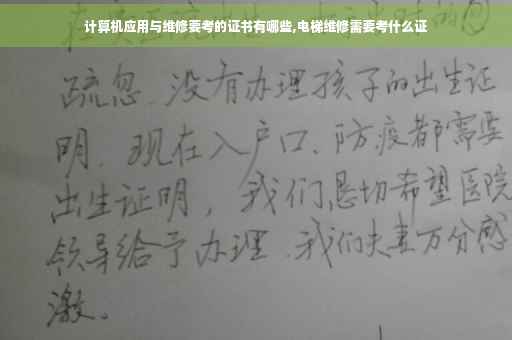 计算机应用与维修要考的证书有哪些,电梯维修需要考什么证
疏忽、没有办理孩子的出生证
明、现在入户口、防疫都需要
出生证明，我们恳切希望医院
领导给予办理、我们夫妻万分感
激。